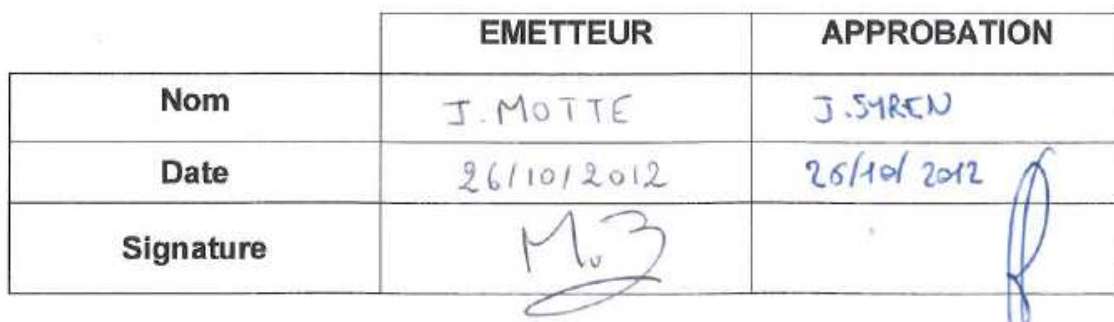 EMETTEUR APPROBATION
Nom J. MOTTE J. SYREN
Date 26/10/2012 26/10/2012
Signature